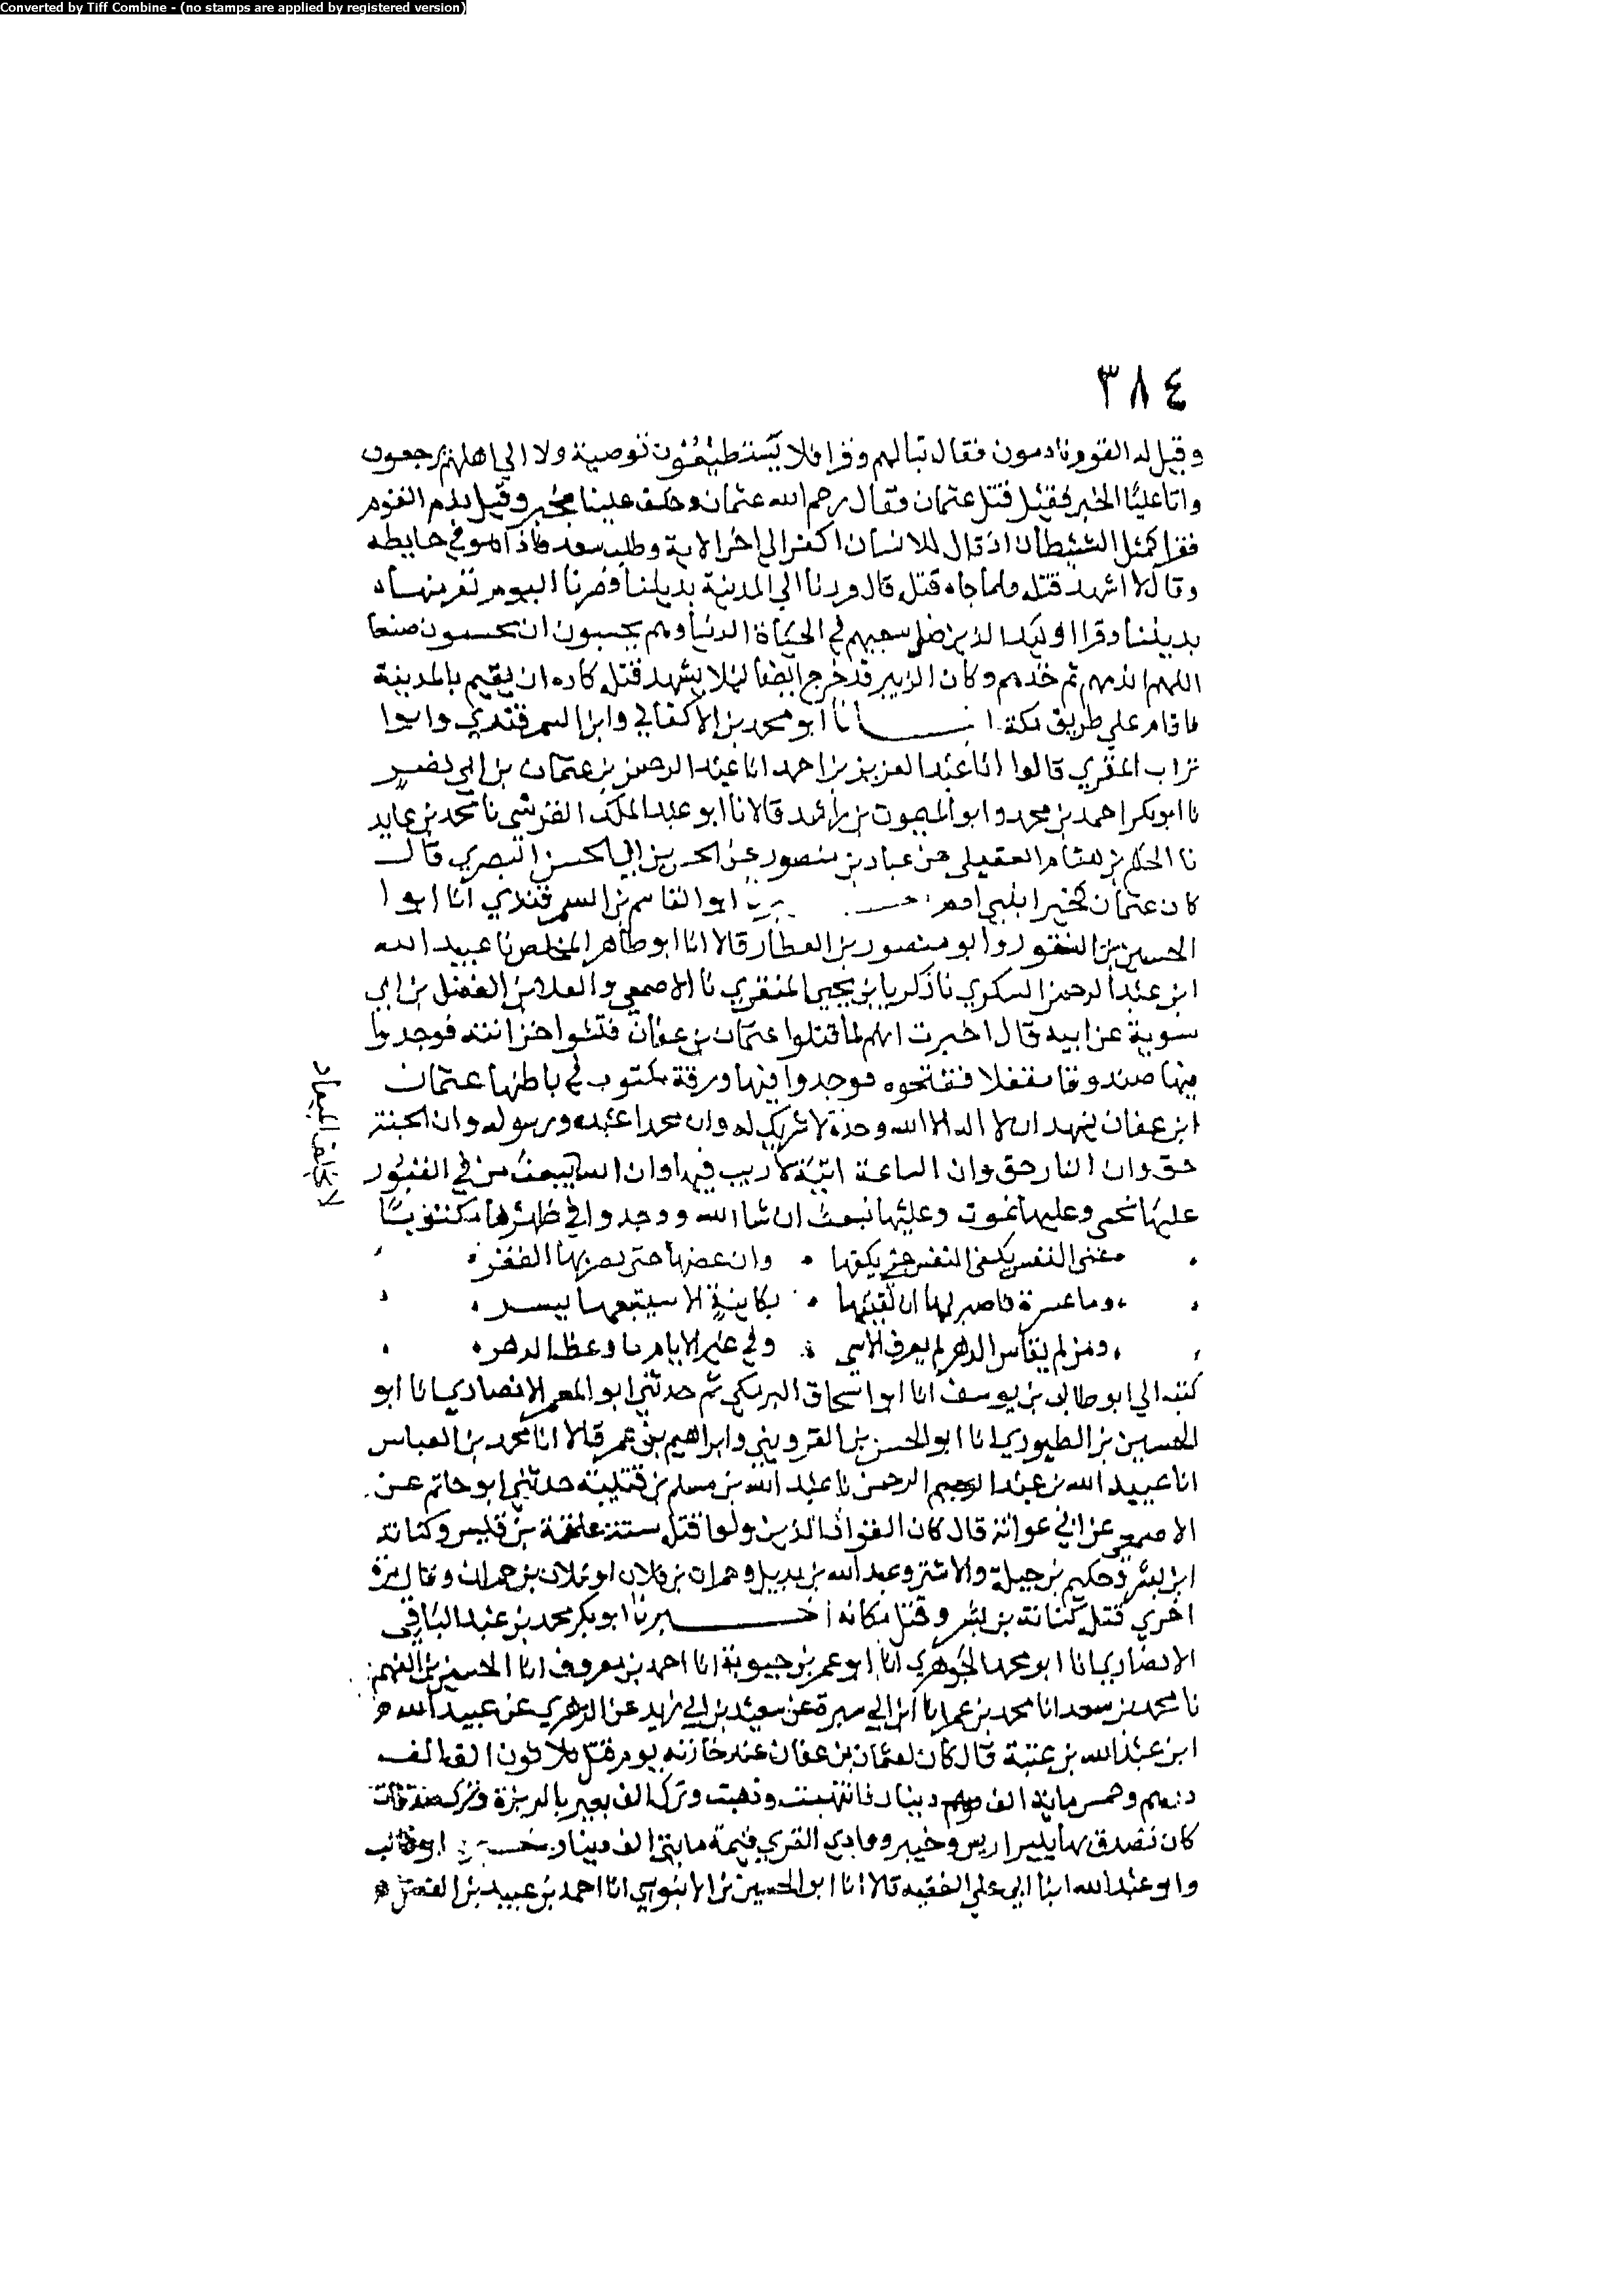 Converted by Tiff Combine - (no stamps are applied by registered version)
٣٨٤
وقيل له القوم نادمون فقال تبالهم وقرا فلا يستطيعون توصية ولا الي اهلهم يرجعون
واتا عليا الخبر فقيل قتل عثمان فقال رحم الله عثمان وخلف علينا بخير وقيل ندم القوم
فقرا كمثل الشيطان اذ قال للانسان اكفر الي اخر الاية وطلب سعد فاذا هو في حايطه
وقال لا اشهد قتله فلما جاه قتله قال فررنا الي المدينة بديننا وفرنا اليوم نفر منها
بديننا وقرا اوليك الذين ضل سعيهم في الحياة الدنيا وهم يحسبون ان يحسنون صنعا
اللهم اندمهم ثم خذهم وكان الزبير قد خرج ايضا ليلا يشهد قتله كاره ان يقيم بالمدينة
فاقام علي طريق مكة انبانا ابو محمد بن الاكفاني وابن السمرقندي وابوا
تراب المقري قالوا انا عبد العزيز بن احمد انا عبد الرحمن بن عثمان بن ابي نصر
نا ابو بكر احمد بن محمد وابو الميمون بن راشد قالا نا ابو عبد الملك القرشي نا محمد بن عايد
نا الحكم بن هشام العقيلي عن عباد بن منصور عن الحسن بن ابي الحسن البصري قال
كان عثمان كخير ابني ادم ابو القاسم بن السمرقندي انا ابوا
الحسين بن النقور وابو منصور بن العطار قالا انا ابو طاهر المخلص نا عبيد الله
ابن عبد الرحمن السكري نا زكريا بن يحيي المنقري نا الاصمعي والعلا بن الفضل بن ابي
سوية عن ابيه قال اخبرت انهم لما قتلوا عثمان بن عفان فتشوا خزانته فوجدوا
فيها صندوقا مقفلا ففتحوه فوجدوا فيها ورقة مكتوب في باطنها عثمان
ابن عفان يشهد ان لا اله الا الله وحده لا شريك له وان محمدا عبده ورسوله وان الجنة
حق وان النار حق وان الساعة اتية لا ريب فيها وان الله يبعث من في القبور
لا يخلف الميعاد
عليها نحيي وعليها نموت وعليها نبعث ان شا الله ووجدوا في ظهرها مكتوبا
غني النفس يكفي النفس حتي يكفها وان عضها حتي يضر بها الفقر
وما عسرة فاصبر لها ان لقيتها بكاينة الا سيتبعها يسر
ومن لم يقاس الدهر لم يعرف الاسي وفي غير الايام ما وعظ الدهر
كتب الي ابو طالب بن يوسف انا ابو اسحاق البرمكي ثم حدثني ابو المعمر الانصاري انا ابو
الحسين بن الطيوري انا ابو الحسن بن القزويني وابراهيم بن عمر قالا انا محمد بن العباس
انا عبيد الله بن عبد الرحمن نا عبد الله بن مسلم بن قتيبة حدثني ابو حاتم عن
الاصمعي عن ابي عوانة قال كان القواد الذين ولوا قتله ستة علقمة بن قيس وكنانة
ابن بشر وحكيم بن جبلة والاشتر وعبد الله بن بديل وحمران بن فلان او فلان بن حمران وقال مرة
اخري قتله كنانة بن بشر وقتل مكانه اخبرنا ابو بكر محمد بن عبد الباقي
الانصاري انا ابو محمد الجوهري انا ابو عمر بن حيوية انا احمد بن معروف انا الحسين بن الفهم
نا محمد بن سعد انا محمد بن عمر نا ابن ابي سبرة عن سعيد بن ابي زيد عن الزهري عن عبيد الله
ابن عبد الله بن عتبة قال كان لعثمان بن عفان عند خازنه يوم قتل ثلاثون الف الف
درهم وخمس ماية الف درهم دينار فانتهبت وذهبت وترك الف بعير بالربذة وترك صدقات
كان تصدق بها بير اريس وخيبر ووادي القري قيمة مايتي الف دينار ابو غالب
وابو عبد الله ابنا ابي علي الفقيه قالا انا ابو الحسين بن الابنوسي انا احمد بن عبيد بن الفضل